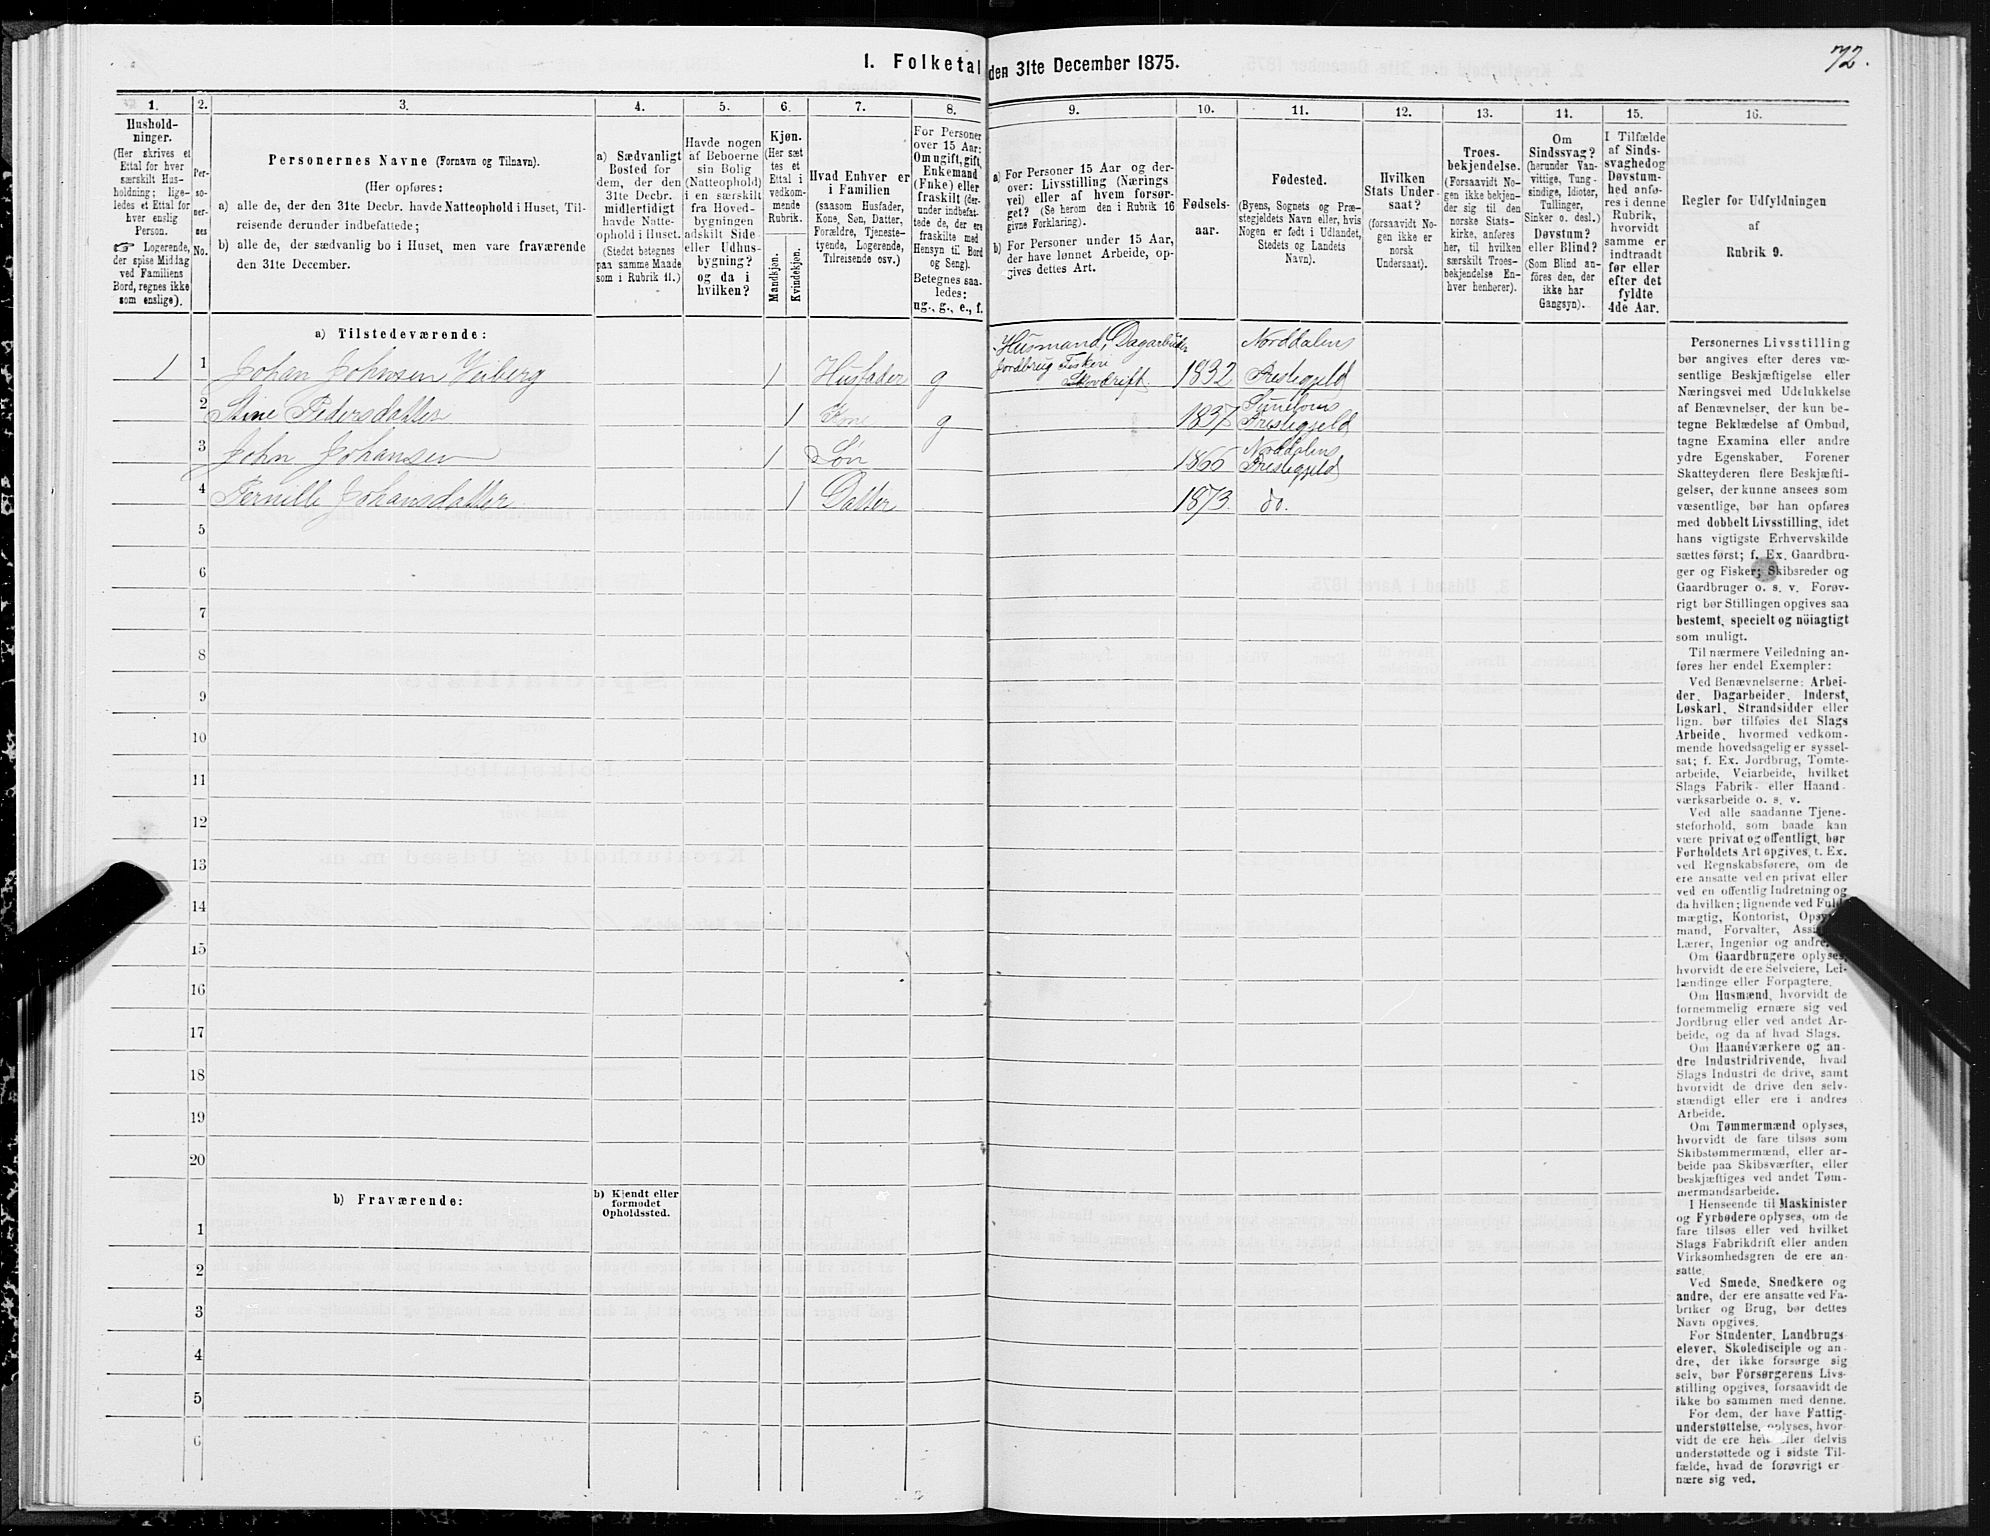 72.
1. Folketal den 31te December 1875.
1. 2. 3. 4. 5. 6. 7. 8. 9. 10. 11. 12. 13. 14. 15. 16.
Hushold-
ninger.
(Her skrives et
Ettal for hver
særskilt Hus-
holdning; lige-
ledes et Ettal for
hver enslig
Person.
☞ Logerende,
der spise Middag
ved Familiens
Bord, regnes ikke
som enslige).
Per-
so-
ner-
nes
No.
Personernes Navne (Fornavn og Tilnavn).
(Her opføres:
a) alle de, der den 31te Decbr. havde Natteophold i Huset, Til-
reisende derunder indbefattede;
b) alle de, der sædvanlig bo i Huset, men vare fraværende
den 31te December.
a) Sædvanligt
Bosted for
dem, der den
31te Decbr.
midlertidigt
havde Natte-
ophold i Huset.
(Stedet betegnes
paa samme Maade
som i Rubrik 11.)
Havde nogen
af Beboerne
sin Bolig
(Natteophold)
i en særskilt
fra Hoved-
bygningen
adskilt Side-
eller Udhus-
bygning?
og da i
hvilken?
Kjøn.
(Her sæt-
tes et
Ettal i
vedkom-
mende
Rubrik.
Mandkjøn.
Kvindekjøn.
Hvad Enhver er
i Familien
(saasom Husfader,
Kone, Søn, Datter,
Forældre, Tjeneste-
tyende, Logerende,
Tilreisende osv.)
For Personer
over 15 Aar:
Om ugift, gift,
Enkemand
(Enke) eller
fraskilt (der-
under indbefat-
tede de, der ere
fraskilte med
Hensyn til Bord
og Seng).
Betegnes saa-
ledes:
ug., g., e., f.
a) For Personer 15 Aar og der-
over: Livsstilling (Nærings
vei) eller af hvem forsør-
get? (Se herom den i Rubrik 16
givne Forklaring).
b) For Personer under 15 Aar,
der have lønnet Arbeide, op-
gives dettes Art.
Fødsels-
aar.
Fødested.
(Byens, Sognets og Præ-
stegjeldets Navn eller, hvis
Nogen er født i Udlandet,
Stedets og Landets
Navn).
Hvilken
Stats Under-
saat?
(forsaavidt No-
gen ikke er
norsk
Undersaat).
Troes-
bekjendelse.
(Forsaavidt No-
gen ikke bekjen-
der sig til den
norske Stats-
kirke, anføres
her, til hvilken
særskilt Troes-
bekjendelse En-
hver henhører).
Om
Sindssvag?
(herunder Van-
vittige, Tung-
sindige, Idioter,
Tullinger,
Sinker o. desl.)
Døvstum?
eller Blind?
(Som Blind an-
føres den, der
ikke har
Gangsyn).
I Tilfælde
af Sinds-
svaghed og
Døvstum-
hed anfø-
res i denne
Rubrik,
hvorvidt
samme er
indtraadt
før eller
efter det
fyldte
4de Aar.
Regler for Udfyldningen
af
Rubrik 9.
a) Tilstedeværende:
1 1 Johan Johnsen Veiberg 1 Husfader g Husmand, Dagarbeider Jordbrug Fiskeri Skovdrift. 1832 Norddalens Prestegjeld
2 Stine Pedersdatter 1 Kone g 1837 Sunelvens Prestegjeld
3 John Johansen 1 Søn 1866 Norddalens Prestegjeld
4 Pernille Johansdatter 1 Datter 1873. do.
5
6
7
8
9
10
11
12
13
14
15
16
17
18
19
20
b) Fraværende:
b) Kjendt eller
formodet
Opholdssted.
1
2
3
4
5
6
Personernes Livsstilling
bør angives efter deres væ-
sentlige Beskjæftigelse eller
Næringsvei med Udelukkelse
af Benævnelser, der kun be-
tegne Beklædelse af Ombud,
tagne Examina eller andre
ydre Egenskaber. Forener
Skatteyderen flere Beskjæfti-
gelser, der kunne ansees som
væsentlige, bør han opføres
med dobbelt Livsstilling, idet
hans vigtigste Erhvervskilde
sættes først; f. Ex. Gaardbru-
ger og Fisker; Skibsreder og
Gaardbruger o. s. v. Forøv-
rigt bør Stillingen opgives saa
bestemt, specielt og nöiagtigt
som muligt.
Til nærmere Veiledning an-
føres her endel Exempler:
Ved Benævnelserne: Arbei-
der, Dagarbeider, Inderst,
Løskarl, Strandsidder eller
lign. bør tilføies det Slags
Arbeide, hvormed vedkom-
mende hovedsagelig er syssel-
sat; f. Ex. Jordbrug, Tomte-
arbeide, Veiarbeide, hvilket
Slags Fabrik- eller Haand-
værksarbeide o. s. v.
Ved alle saadanne Tjene-
steforhold, som baade kan
være privat og offentligt, bør
Forholdets Art opgives, t. Ex.
ved Regnskabsførere, om de
ere ansatte ved en privat eller
ved en offentlig Indretning og
da hvilken; lignende ved Fuld-
mægtig, Kontorist, Opsyns-
mand, Forvalter, Assistent,
Lærer, Ingeniør og andre.
Om Gaardbrugere oplyses,
hvorvidt de ere Selveiere, Lei-
lændinge eller Forpagtere.
Om Husmænd, hvorvidt de
fornemmelig ernære sig ved
Jordbrug eller ved andet Ar-
beide, og da af hvad Slags.
Om Haandværkere og an-
dre Industridrivende, hvad
Slags Industri de drive, samt
hvorvidt de drive den selv-
stændigt eller ere i andres
Arbeide.
Om Tømmermænd oplyses,
hvorvidt de fare tilsøs som
Skibstømmermænd, eller ar-
beide paa Skibsværfter, eller
beskjæftiges ved andet Tøm-
mermandsarbeide.
I Henseende til Maskinister
og Fyrbødere oplyses, om de
fare tilsøs eller ved hvilket
Slags Fabrikdrift eller anden
Virksomhedsgren de ere an-
satte.
Ved Smede, Snedkere og
andre, der ere ansatte ved Fa-
briker og Brug, bør dettes
Navn opgives.
For Studenter, Landbrugs-
elever, Skoledisciple og an-
dre, der ikke forsørge sig
selv, bør Forsørgerens Livs-
stilling opgives, forsaavidt de
ikke bo sammen med denne.
For dem, der have Fattig-
understøttelse, oplyses, hvor-
vidt de ere helt eller delvis
understøttede og i sidste Til-
fælde, hvad de forøvrigt er-
nære sig ved.